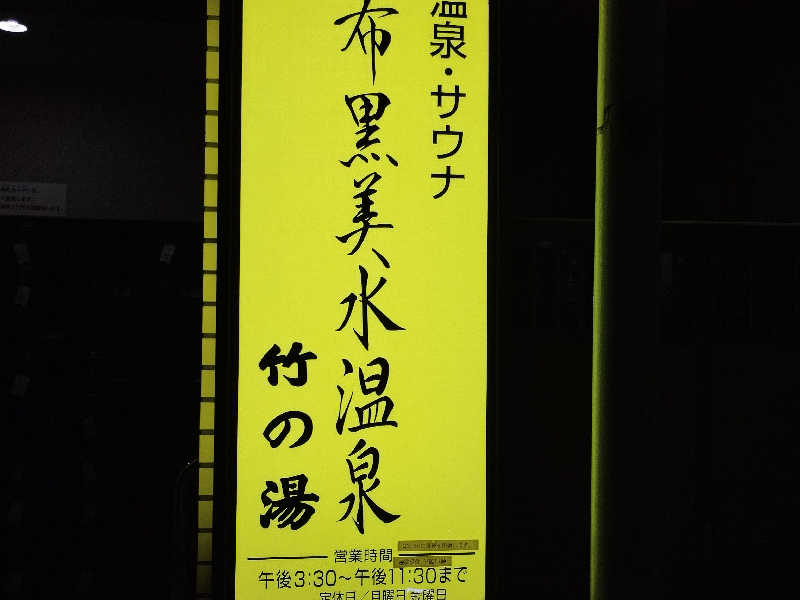 温泉・サウナ
布黒美水温泉
竹の湯
営業時間
午後3:30〜午後11:30まで
定休日/月曜日 金曜日